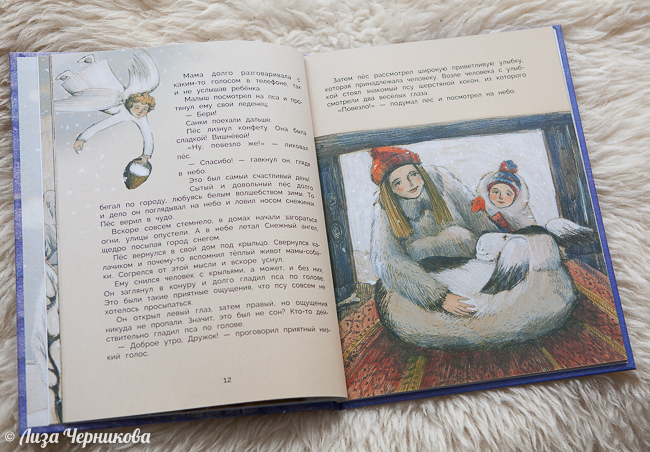 Мама долго разговаривала с
каким-то голосом в телефоне, так
и не услышав ребёнка.
Малыш посмотрел на пса и про-
тянул ему свой леденец.
— Бери!
Санки поехали дальше.
Пёс лизнул конфету. Она была
сладкой! Вишнёвой!
«Ну, повезло же!» — ликовал
пёс.
— Спасибо! — гавкнул он, глядя
в небо.
Это был самый счастливый день!
Сытый и довольный пёс долго
бегал по городу, любуясь белым волшебством зимы. То
и дело он поглядывал на небо и ловил носом снежинки.
Пёс верил в чудо.
Вскоре совсем стемнело, в домах начали загораться
огни, улицы опустели. А в небе летал Снежный ангел,
щедро посыпая город снегом.
Пёс вернулся в свой дом под крыльцо. Свернулся ка-
лачиком и почему-то вспомнил тёплый живот мамы-соба-
ки. Согрелся от этой мысли и вскоре уснул.
Ему снился человек с крыльями, а может, и без них.
Он заглянул в конуру и долго гладил пса по голове.
Это были такие приятные ощущения, что псу совсем не
хотелось просыпаться.
Он открыл левый глаз, затем правый, но ощущения
никуда не пропали. Значит, это был не сон? Кто-то дей-
ствительно гладил пса по голове.
— Доброе утро, Дружок! — проговорил приятный низ-
кий голос.
12
Затем пёс рассмотрел широкую приветливую улыбку,
которая принадлежала человеку. Возле человека с улыб-
кой стоял знакомый псу шерстяной кокон, из которого
смотрели два весёлых глаза.
«Повезло!» — подумал пёс и посмотрел на небо
© Лиза Черникова